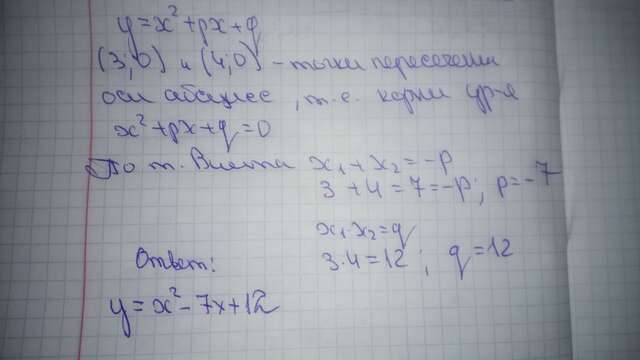 y=x²+px+q
(3;0) и (4;0) - точки пересечения
оси абсцисс, т.е. корни ур-я
x²+px+q=0
По т. Виета x₁+x₂=-p
3+4=7=-p; p=-7
x₁·x₂=q
Ответ: 3·4=12; q=12
y=x²-7x+12